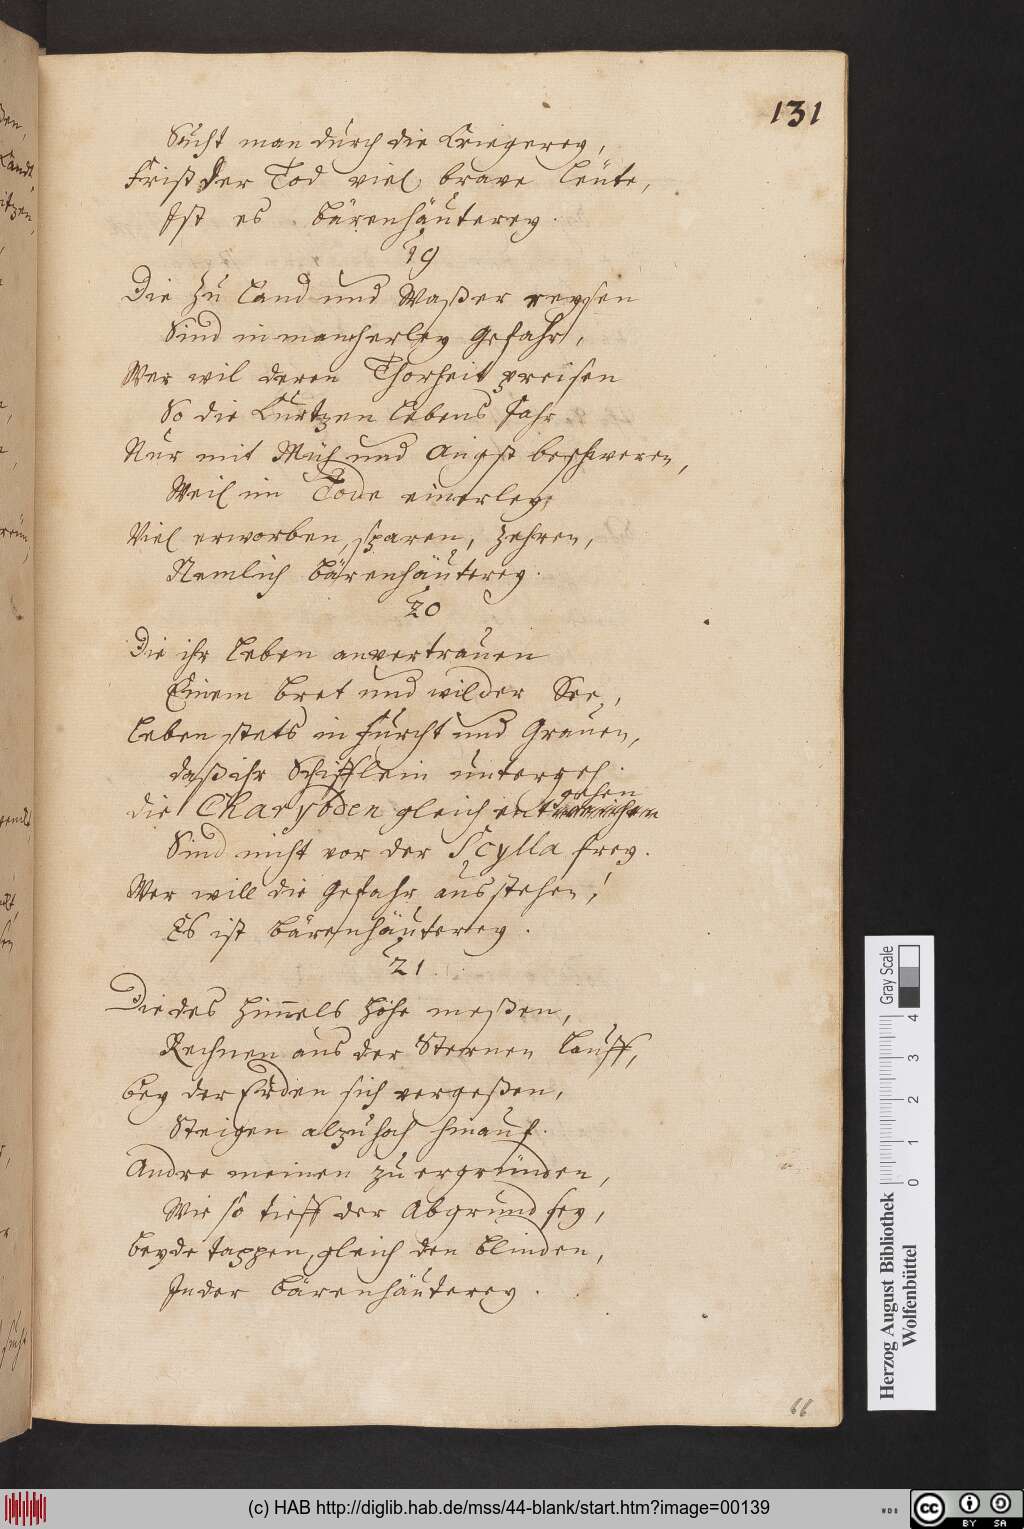 131
Sucht man durch die Kriegerey,
Frist der Tod viel brave Leute,
Ist es Bärenhäuterey.
19
Die zu Land und Waßer reysen
Sind in mancherley Gefahr,
Wer wil deren Thorheit preisen
So die Kurtzen Lebens Jahr
Nur mit Müh und Angst beschweren,
Weil im Tode einerley,
Viel erworben, sparen, zehren,
Nemlich Bärenhäuterey.
20
Die ihr Leben anvertrauen
Einem Bret und wilder See,
Leben stets in Furcht und Grauen,
daß ihr Schifflein untergeh.
die Charybden gleich entgehen
Sind nicht vor der Scylla frey.
Wer will die Gefahr ausstehen!
Es ist Bärenhäuterey.
21
Die des Him̅els Höhe meßen,
Rechnen aus der Sternen Lauff,
Bey der Erden sich vergeßen,
Steigen alzuhoch hinauf.
Andre meinen zu ergründen,
Wie so tieff der Abgrund sey,
Beyde tappen, gleich den Blinden,
In der Bärenhäuterey.
66
Herzog August Bibliothek
Wolfenbüttel
0 1 2 3 4
Gray Scale
(c) HAB http://diglib.hab.de/mss/44-blank/start.htm?image=00139
WDB
cc
BY SA